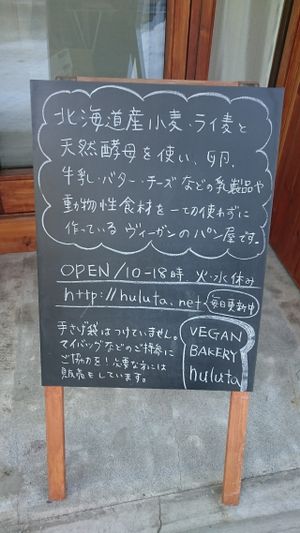 北海道産小麦、ライ麦と
天然酵母を使い、卵、
牛乳・バター・チーズなどの乳製品や
動物性食材を一切使わずに
作っているヴィーガンのパン屋です。
OPEN/10-18時 火・水休み
http://huluta.net 毎日更新中
手さげ袋はつけていません。
マイバッグなどのご持参に
ご協力を!必要な方には
販売もしています。
VEGAN
BAKERY
huluta